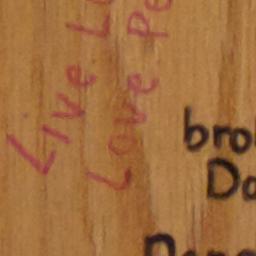 Live L
Love Pe
bro
Do